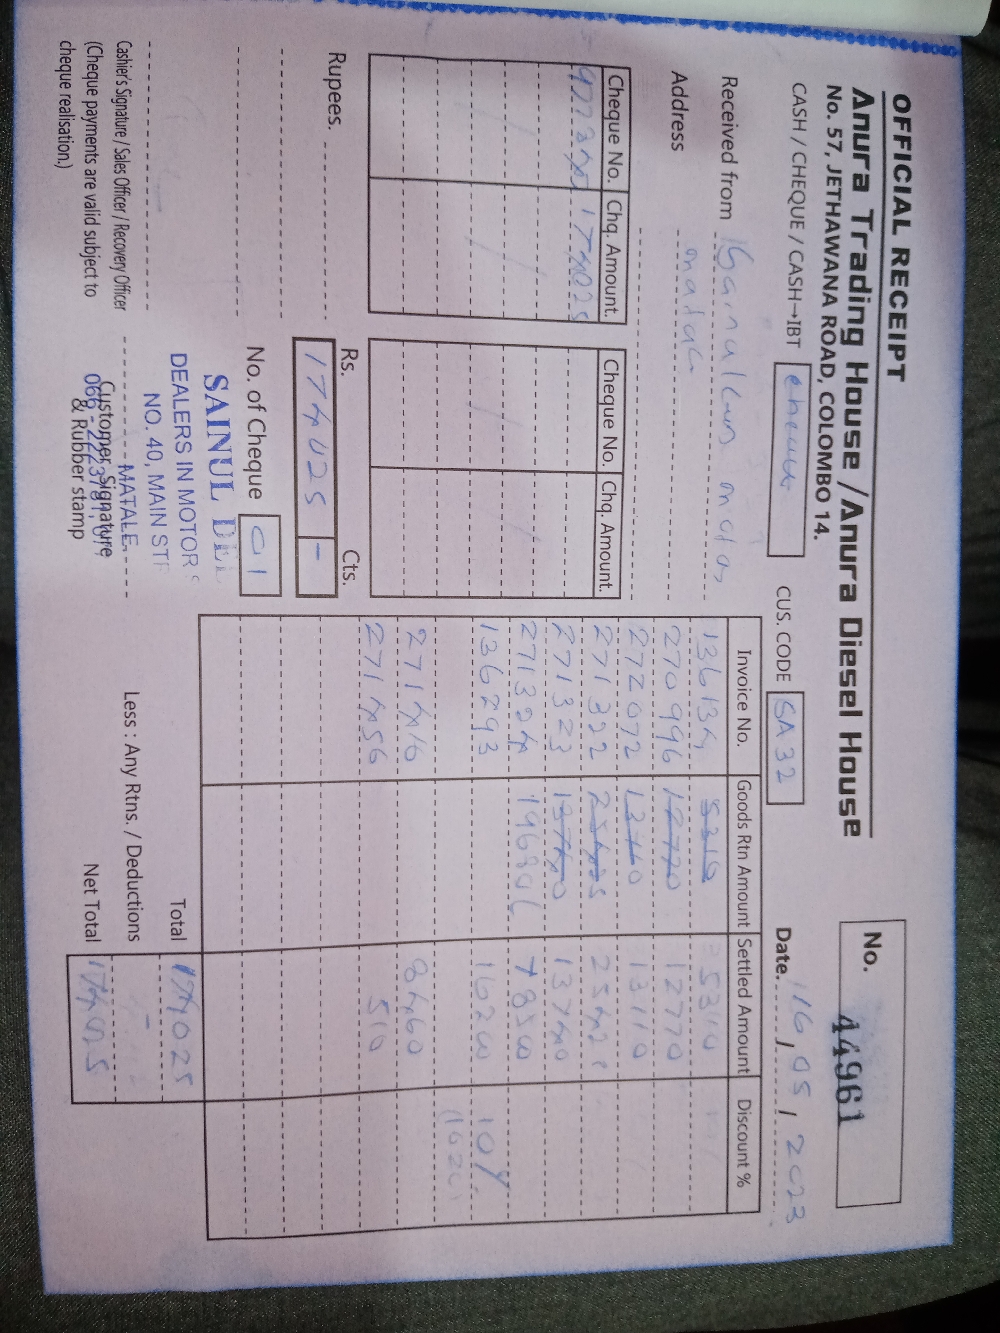 OFFICIAL RECEIPT
Anura Trading House / Anura Diesel House
No. 57, JETHAWANA ROAD, COLOMBO 14.
No. 44961
CASH / CHEQUE / CASH→IBT
CUS. CODE SA 32
Date. 16 / 05 / 2023
Received from
Address
Cheque No. Chq. Amount. Cheque No. Chq. Amount.
174025
Rupees.
Rs. Cts.
174025 -
No. of Cheque 01
Invoice No. Goods Rtn Amount Settled Amount Discount %
136134 5310 5310
270996 12770 12770
272072 13110 13110
271322
271323 13740 13740
271324 7850
136293 16200 10%
(1620)
271416 8460
271456 510
Total 174025
Less : Any Rtns. / Deductions -
Net Total 174025
SAINUL
DEALERS IN MOTOR
NO. 40, MAIN
MATALE.
Cashier's Signature / Sales Officer / Recovery Officer
(Cheque payments are valid subject to
cheque realisation.)
Customer Signature
& Rubber stamp